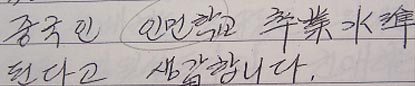 중국인 인민학교 卒業水準
된다고 생각합니다.